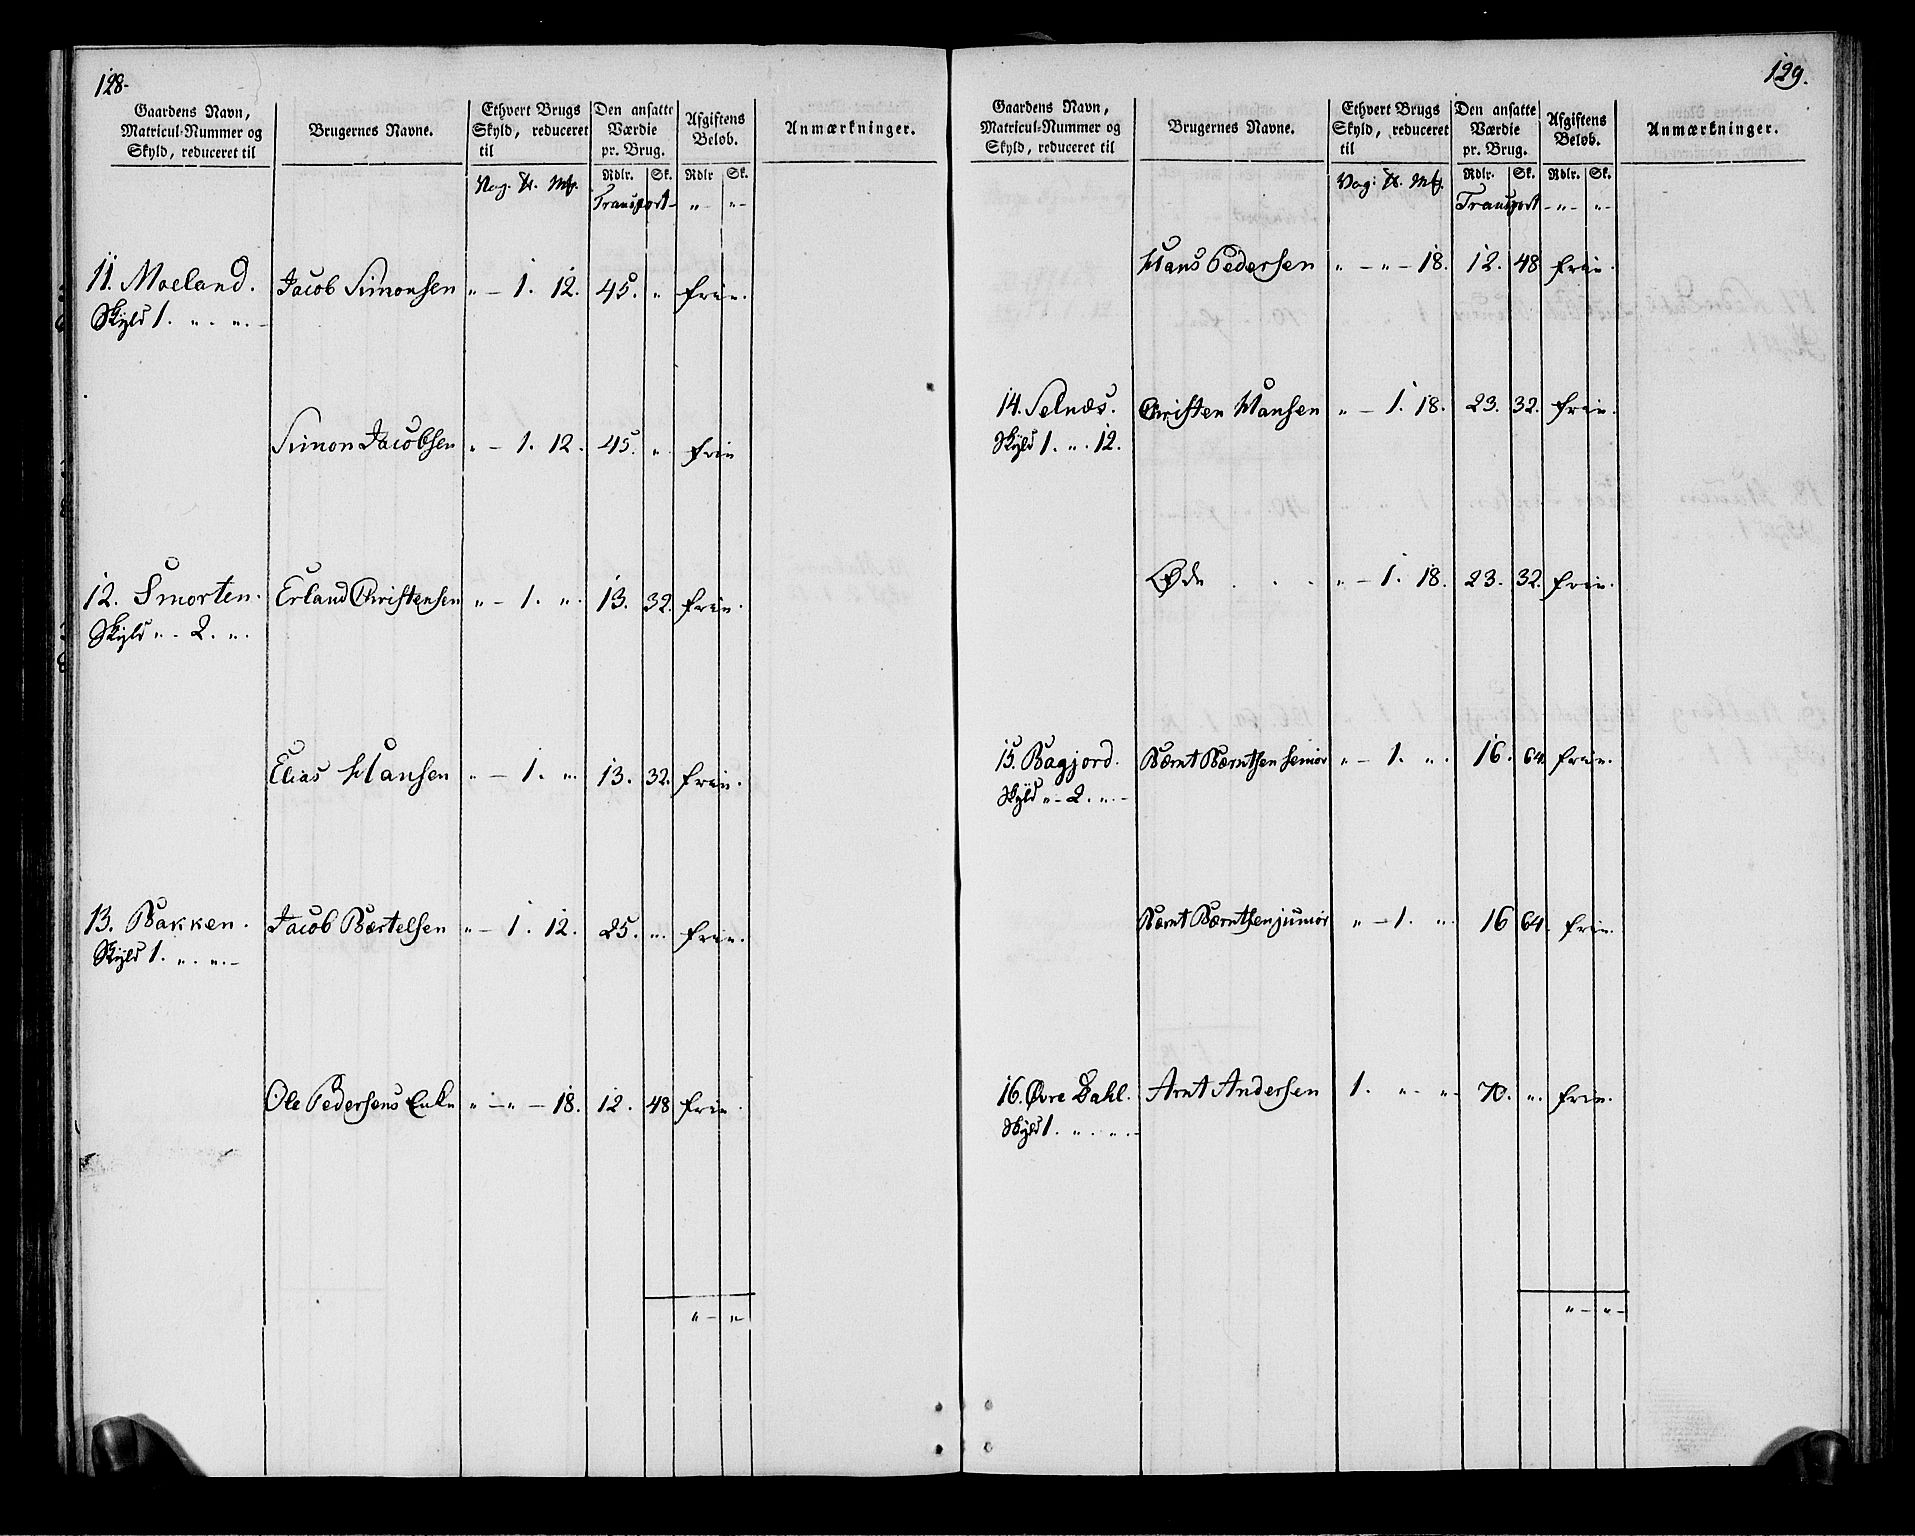 128.
Gaardens Navn, Matricul-Nummer og Skyld, reduceret til
Brugernes Navne.
Ethvert Brugs Skyld, reduceret til
Den ansatte Værdie pr. Brug.
Afgiftens Beløb.
Anmærkninger.
Vog. Mk.
Rdlr. Sk. Rdlr Sk.
Transport - " - " -
11. Moeland. Jacob Simonsen " - 1. 12. 45. " frie.
Skyld 1. " . " . -
Simon Jacobsen " - 1. 12. 45. " frie
12. Smorten. Erland Christensen " - 1. ". 13. 32. frie.
Skyld " - 2. ".
Elias Hansen " - 1. ". 13. 32. frie.
13. Bakken. Jacob Bertelsen " - 1. 12. 25. ". frie.
Skyld 1. " . " . -
Ole Pedersens Enke " - " - 18. 12. 48 frie.
" - " -
129.
Gaardens Navn, Matricul-Nummer og Skyld, reduceret til
Brugernes Navne.
Ethvert Brugs Skyld, reduceret til
Den ansatte Værdie pr. Brug.
Afgiftens Beløb.
Anmærkninger.
Vog: Mk.
Rdlr. Sk. Rdlr. Sk.
Transport - " - " -
Hans Pedersen " - " - 18. 12. 48 frie.
14. Selnæs. Christen Hansen " - 1. 18. 23. 32. frie.
Skyld 1. " . 12.
Øde . . . " - 1. 18. 23. 32. frie.
15. Bagjord. Bernt Berntsen senior " - 1. ". 16. 64. frie.
Skyld " - 2. " . -
Bernt Berntsen junior " - 1. ". 16 64. frie.
16. Øvre Dahl. Arnt Andersen 1. " - " - 70. ". frie.
Skyld 1. " . " . -
" - " -